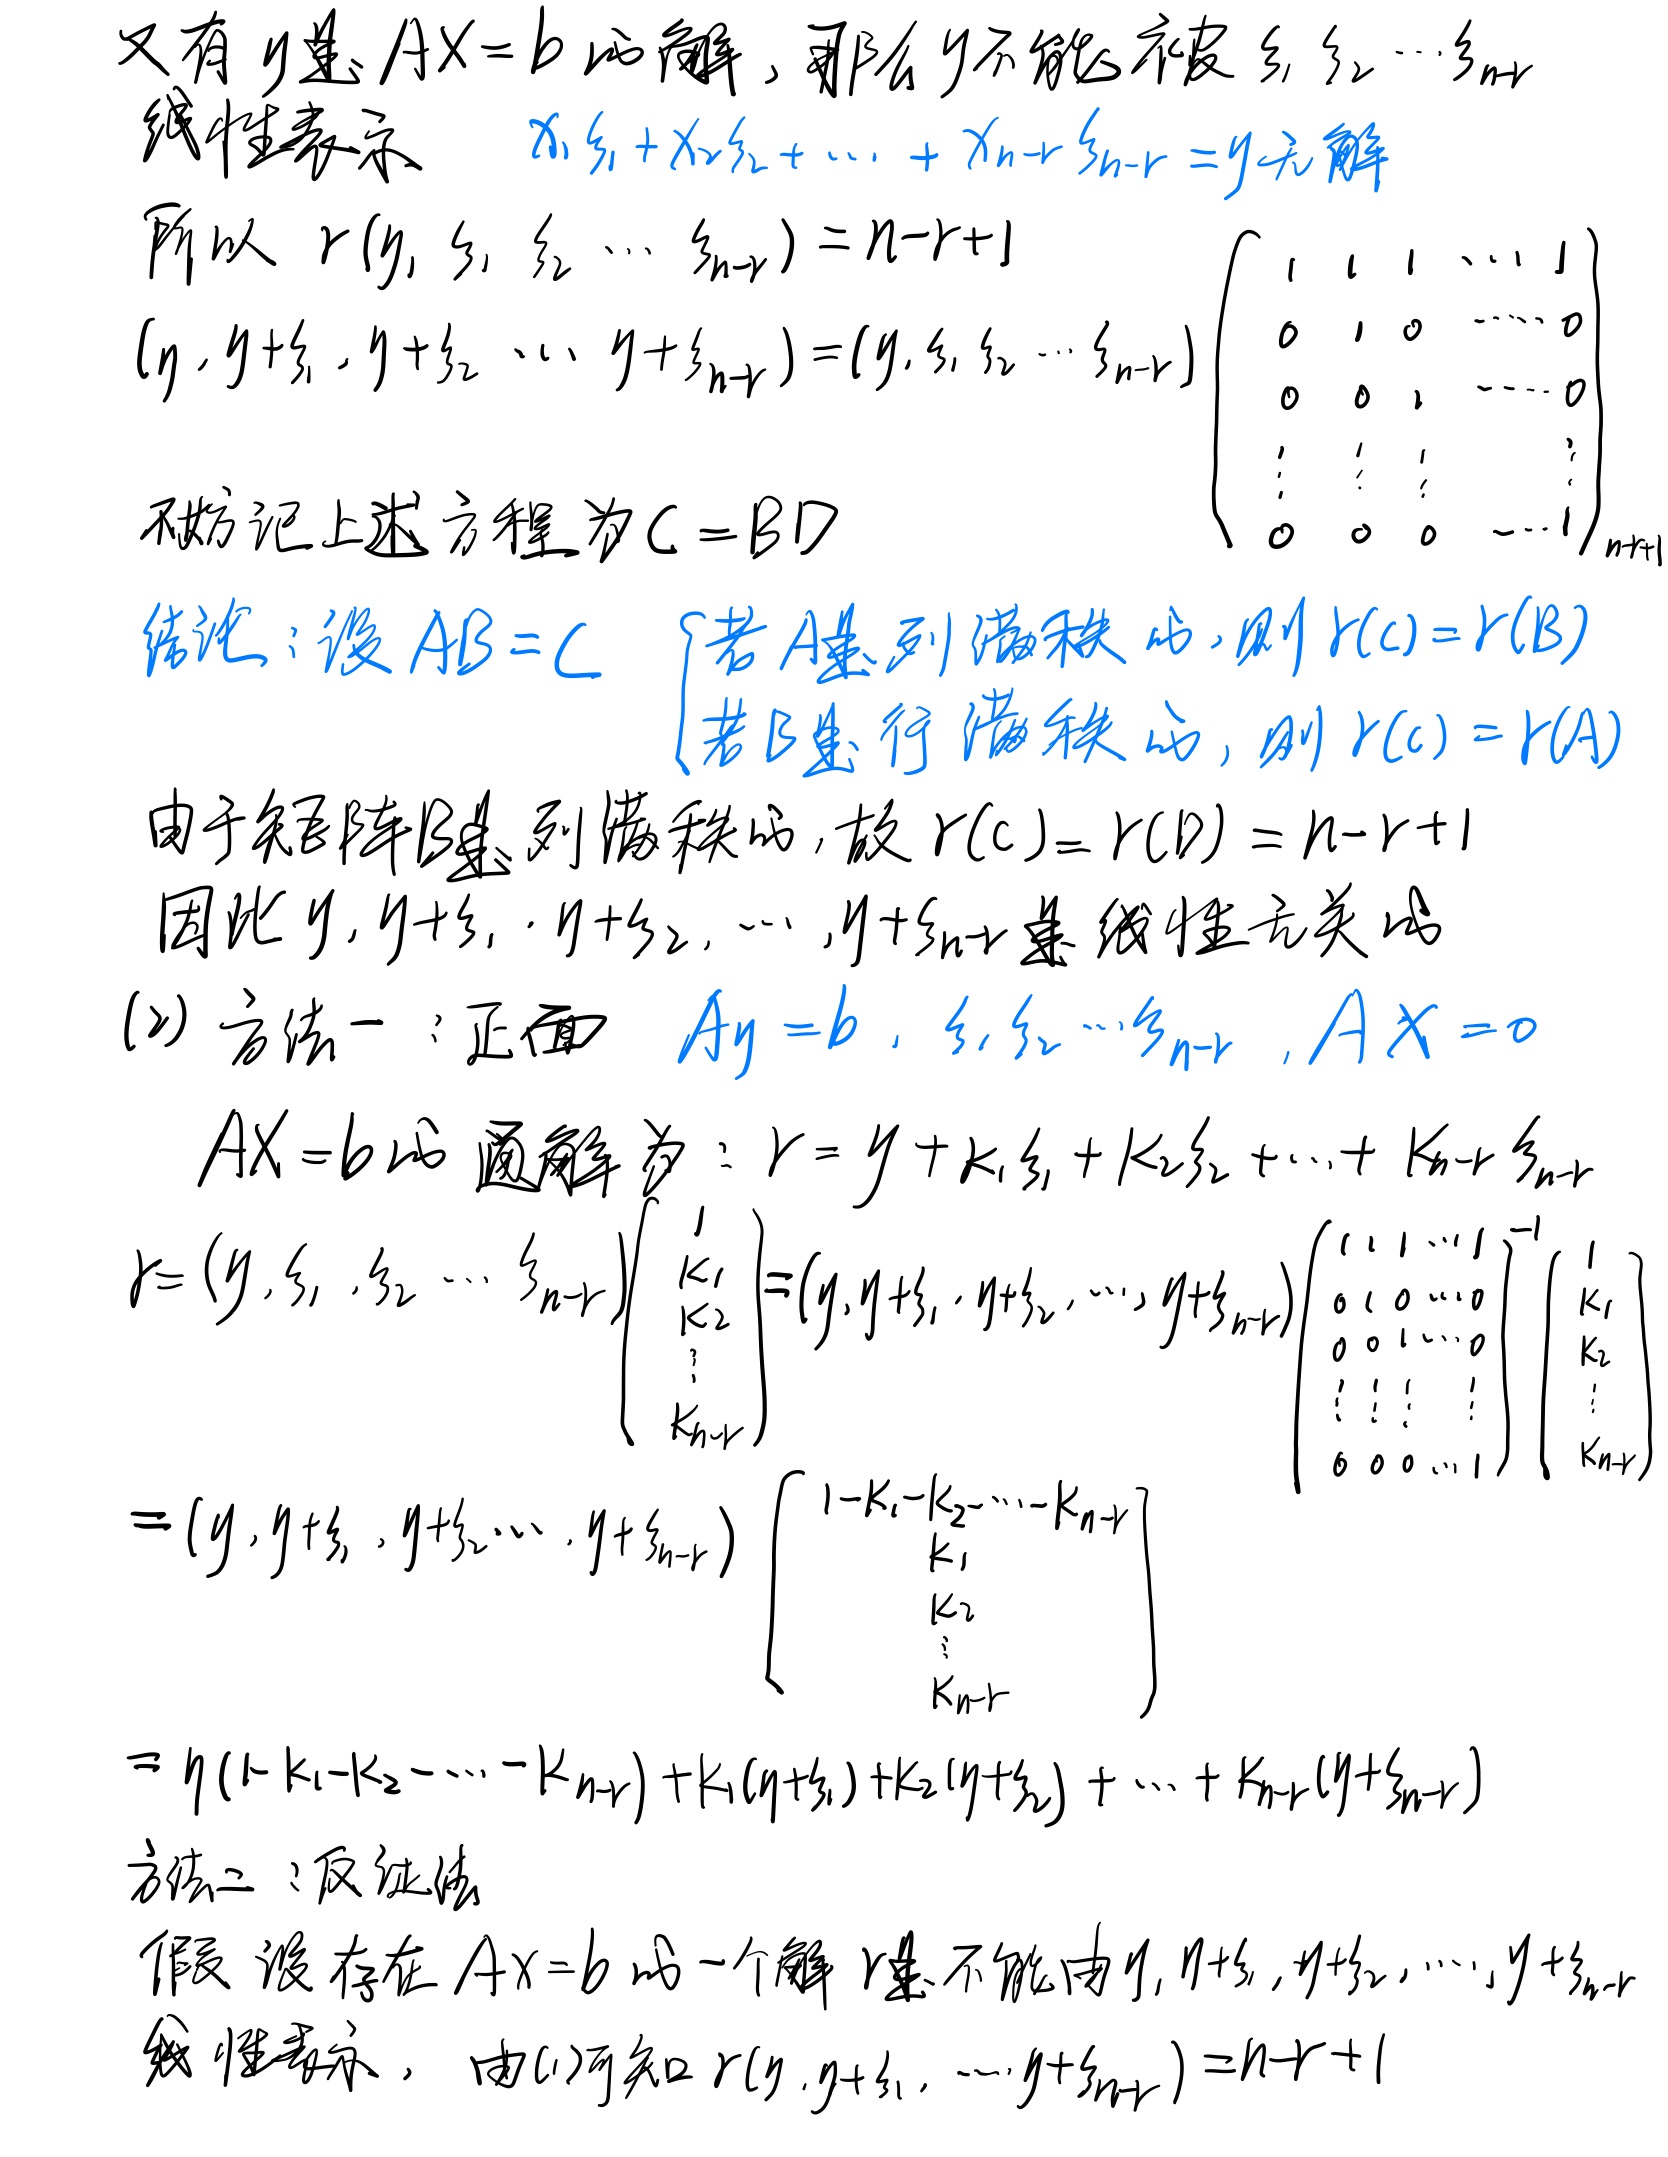 又有 η是 AX=b 的解，那么 η不能被 ξ₁ ξ₂ ⋯ ξₙ₋ᵣ
线性表示 x₁ξ₁+x₂ξ₂+⋯+xₙ₋ᵣξₙ₋ᵣ=η无解
所以 r(η, ξ₁ ξ₂ ⋯ ξₙ₋ᵣ)=n-r+1
(η, η+ξ₁, η+ξ₂ ⋯ η+ξₙ₋ᵣ)=(η, ξ₁ ξ₂ ⋯ ξₙ₋ᵣ)
1 1 1 ⋯ 1
0 1 0 ⋯ 0
0 0 1 ⋯ 0
⋮ ⋮ ⋮ ⋮
0 0 0 ⋯ 1
n-r+1
不妨记上述方程为 C=BD
结论：设 AB=C
若 A是列满秩的，则 r(C)=r(B)
若 B是行满秩的，则 r(C)=r(A)
由于矩阵B是列满秩的，故 r(C)=r(D)=n-r+1
因此 η, η+ξ₁, η+ξ₂, ⋯, η+ξₙ₋ᵣ 是线性无关的
(2) 方法一：正面 Aη=b, ξ₁ ξ₂ ⋯ ξₙ₋ᵣ, AX=0
AX=b的通解为：r=η+K₁ξ₁+K₂ξ₂+⋯+Kₙ₋ᵣξₙ₋ᵣ
r=(η, ξ₁, ξ₂ ⋯ ξₙ₋ᵣ)
1
K₁
K₂
⋮
Kₙ₋ᵣ
=(η, η+ξ₁, η+ξ₂, ⋯, η+ξₙ₋ᵣ)
1 1 1 ⋯ 1
0 1 0 ⋯ 0
0 0 1 ⋯ 0
⋮ ⋮ ⋮ ⋮
0 0 0 ⋯ 1
-1
1
K₁
K₂
⋮
Kₙ₋ᵣ
=(η, η+ξ₁, η+ξ₂ ⋯, η+ξₙ₋ᵣ)
1-K₁-K₂-⋯-Kₙ₋ᵣ
K₁
K₂
⋮
Kₙ₋ᵣ
=η(1-K₁-K₂-⋯-Kₙ₋ᵣ)+K₁(η+ξ₁)+K₂(η+ξ₂)+⋯+Kₙ₋ᵣ(η+ξₙ₋ᵣ)
方法二：反证法
假设存在 AX=b 的一个解 r是不能由 η, η+ξ₁, η+ξ₂, ⋯, η+ξₙ₋ᵣ
线性表示，由(1)可知 r(η, η+ξ₁, ⋯, η+ξₙ₋ᵣ)=n-r+1